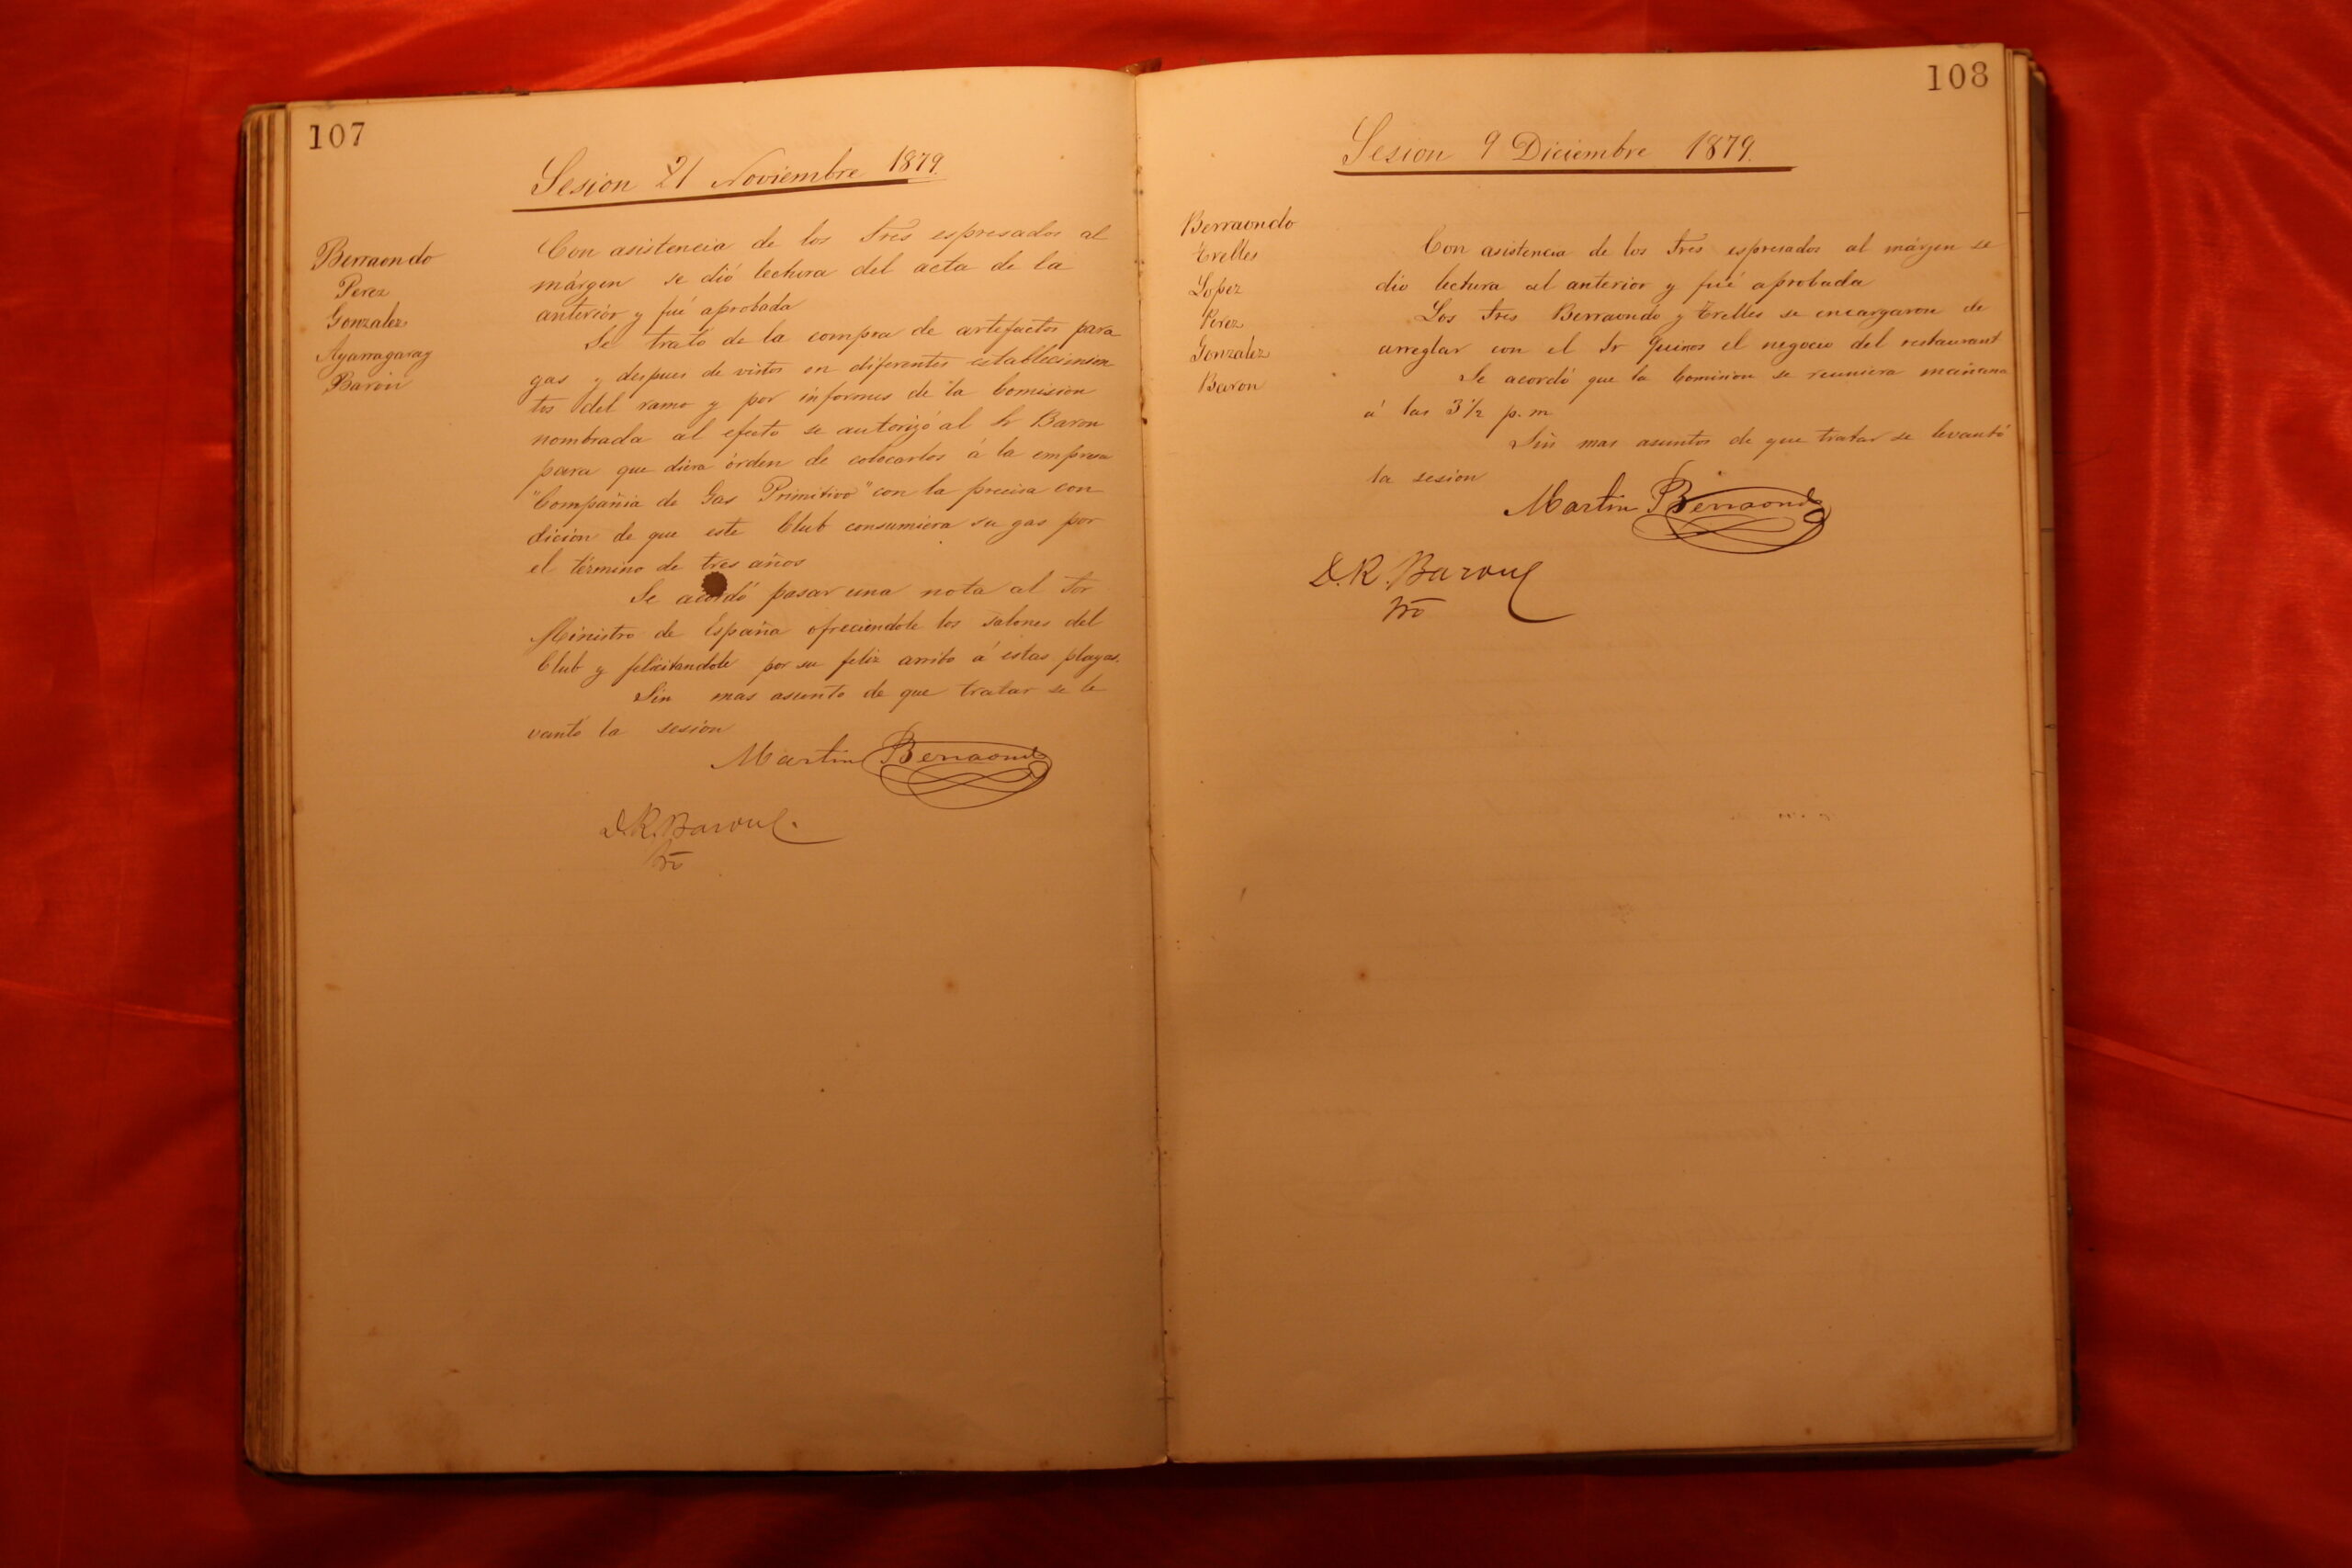 107
Sesion 21 Noviembre 1879.
Berraondo
Perez
Gonzalez
Ayarragaray
Baron
Con asistencia de los Sres espresados al
márgen se dió lectura del acta de la
anterior y fué aprobada
Se trató de la compra de artefactos para
gas y despues de vistos en diferentes establecimien
tos del ramo y por informes de la Comision
nombrada al efecto se autorizó al Sr Baron
para que diera órden de colocarlos á la empresa
"Compañia de Gas Primitivo" con la precisa con
dicion de que este Club consumiera su gas por
el término de tres años
Se acordó pasar una nota al Sor
Ministro de España ofreciendole los salones del
Club y felicitandole por su feliz arribo á estas playas.
Sin mas asunto de que tratar se le
vantó la sesion
Martin Berraondo
D.R. Baron
108
Sesion 9 Diciembre 1879.
Berraondo
Trelles
Lopez
Perez
Gonzalez
Baron
Con asistencia de los Sres espresados al márgen se
dio lectura al anterior y fué aprobada
Los Sres Berraondo y Trelles se encargaron de
arreglar con el Sr Quiros el negocio del restaurant
Se acordó que la Comision se reuniera mañana
á las 3 1/2 p.m
Sin mas asuntos de que tratar se levantó
la sesion
Martin Berraondo
D.R. Baron